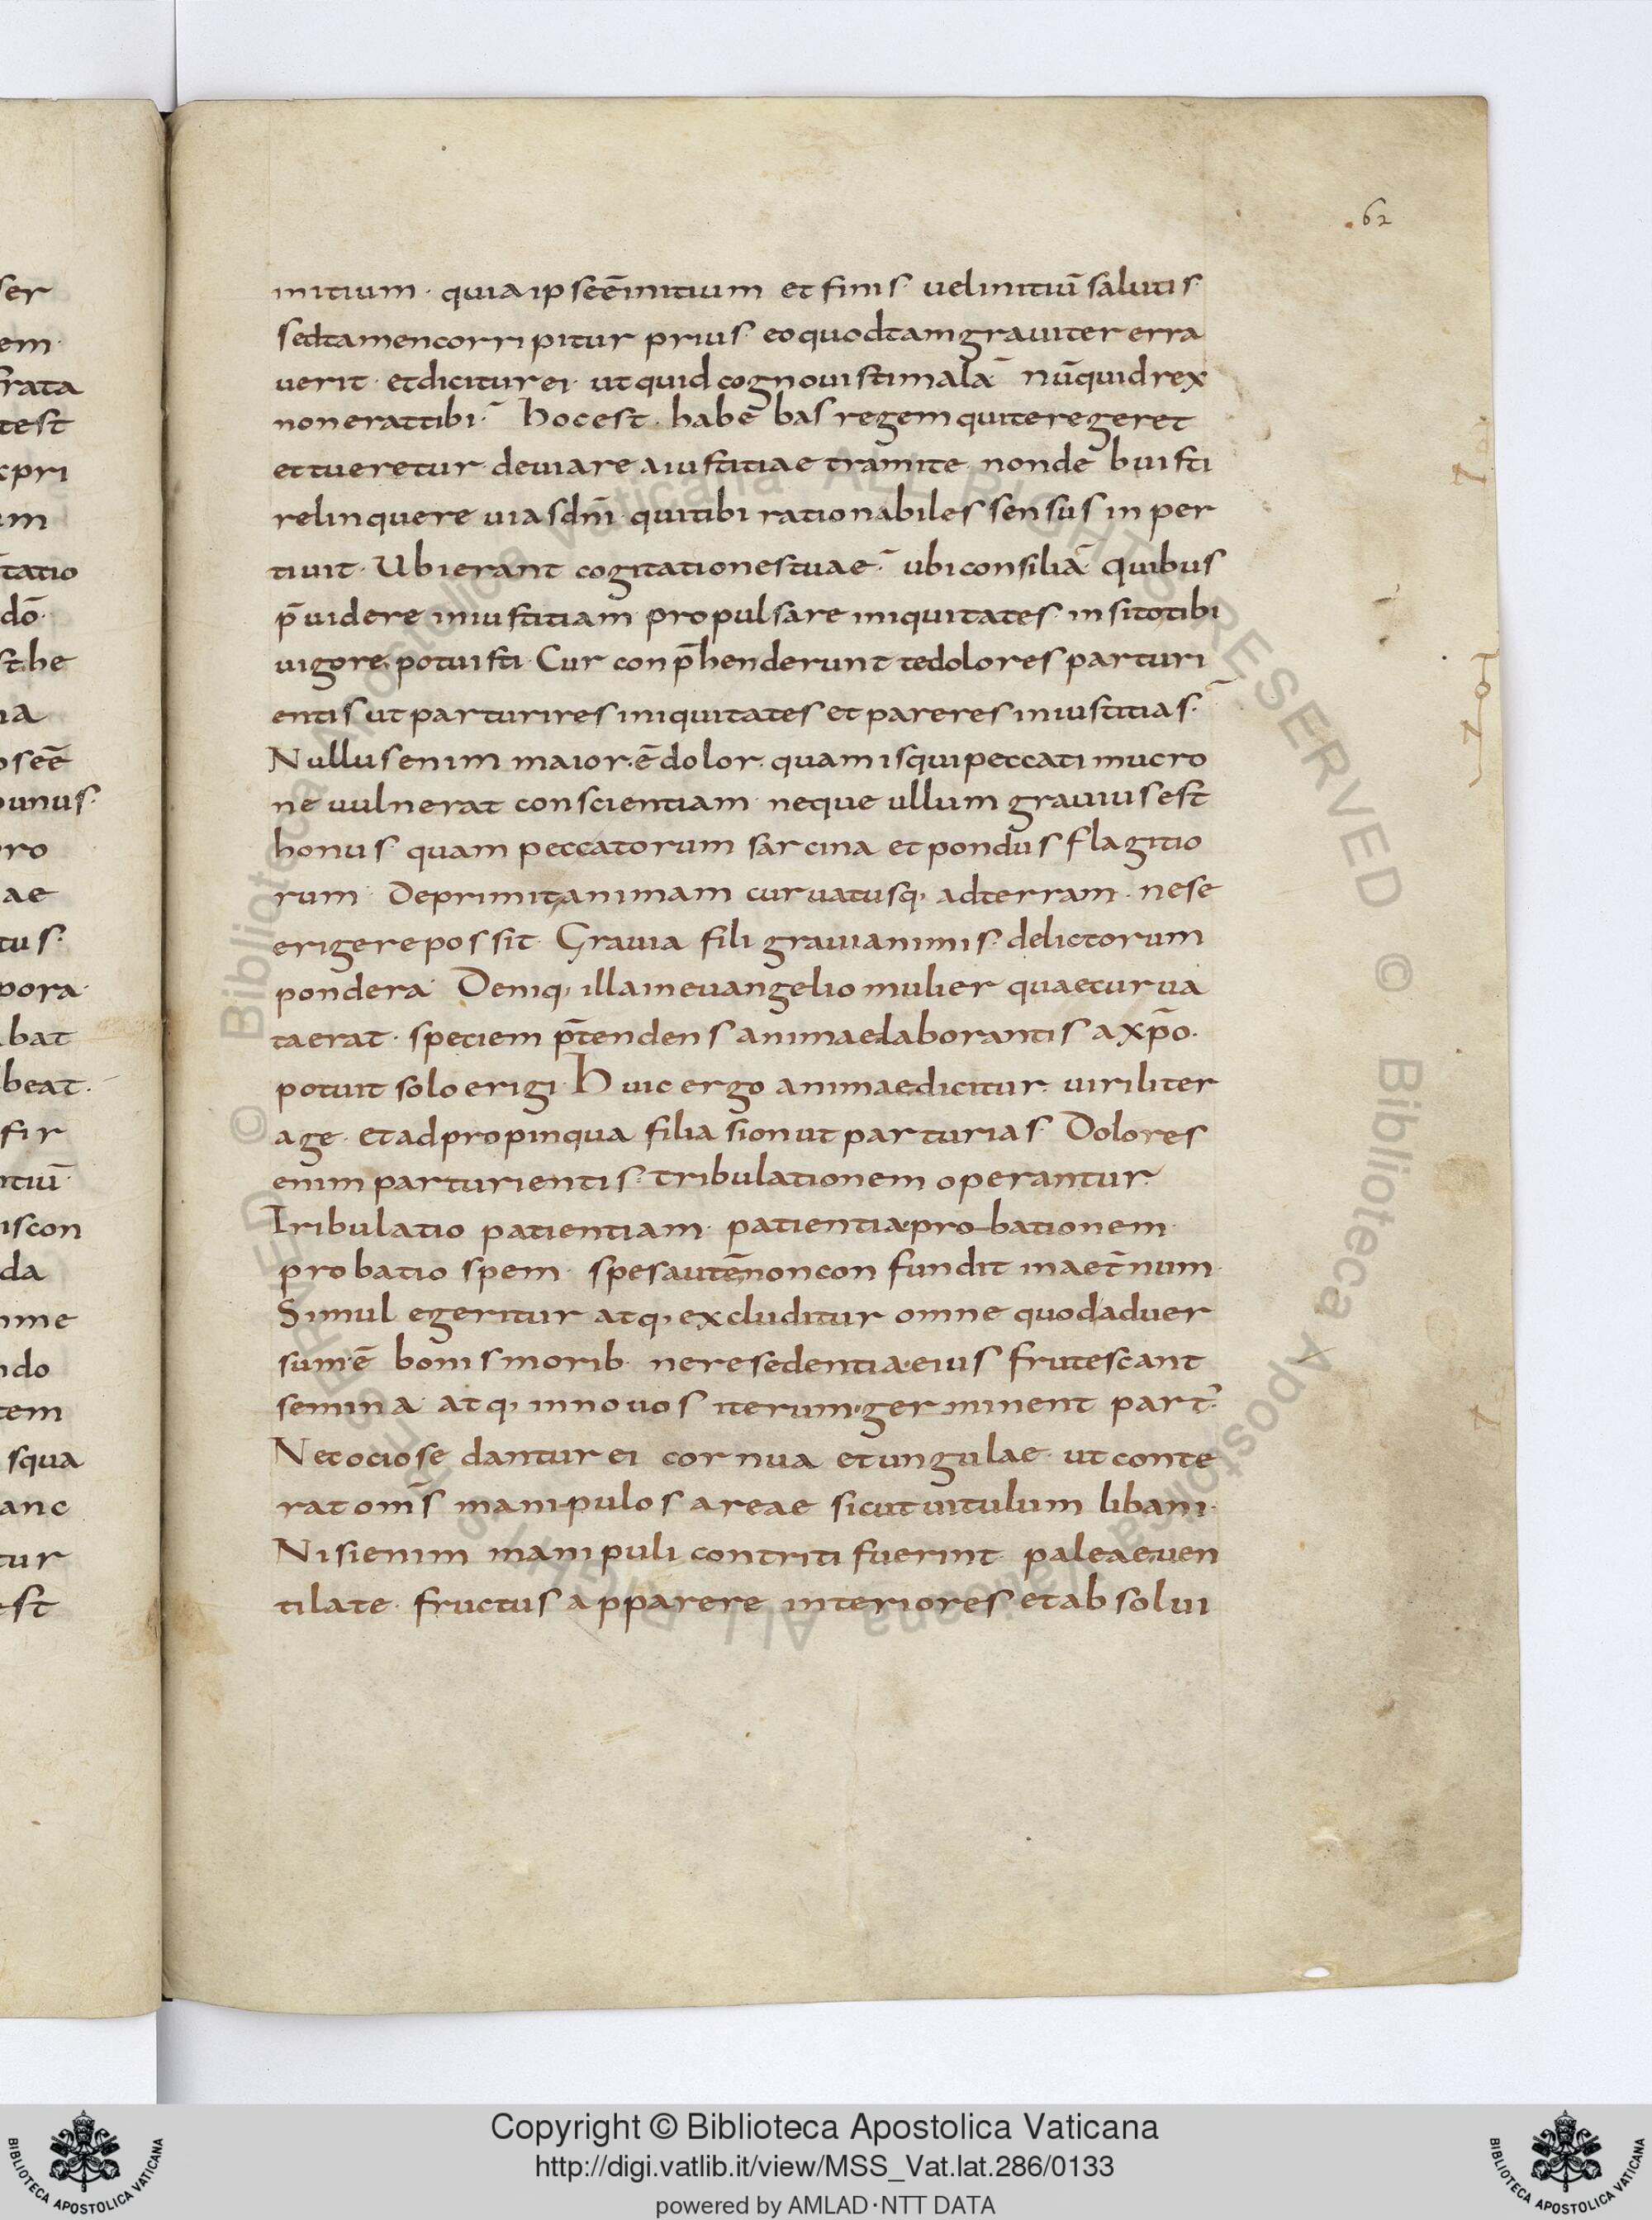 62
initium · quia ipse ē initium et finis · vel initiū salutis ·
sed tamen corripitur prius · eo quod tam graviter erra
verit · et dicitur ei · ut quid cognovisti mala · nūquid rex
non erat tibi · hoc est · habebas regem qui te regeret
et tueretur · deviare a iustitiae tramite · non debuisti
relinquere vias dn̄i · qui tibi rationabiles sensus inper
tivit · Ubi erant cogitationes tuae · ubi consilia · quibus
p̄videre iniustitiam · propulsare iniquitates · insito tibi
vigore potuisti · Cur conp̄henderunt te dolores parturi
entis ut parturires iniquitates et pareres iniustitias ·
Nullus enim maior ē dolor · quam is qui peccati mucro
ne vulnerat conscientiam · neque ullum gravius est
honus quam peccatorum sarcina et pondus flagitio
rum · Deprimit animam curvatusq; ad terram · ne se
erigere possit · Gravia fili gravia nimis · delictorum
pondera · Deniq; illa in evangelio mulier quae curva
ta erat · speciem p̄tendens animae laborantis a xp̄o ·
potuit solo erigi · Huic ergo animae dicitur · viriliter
age · et adpropinqua filia sion ut parturias · Dolores
enim parturientis · tribulationem operantur ·
Tribulatio patientiam · patientia probationem ·
probatio spem · spes autē non confundit in aet̄num ·
Simul egeritur atq; excluditur omne quod adver
sum ē bonis morib · ne resedentia eius frutescant
semina · atq; in novos iterum germinent part' ·
Nec ociose dantur ei cornua et ungulae · ut conte
rat om̄s manipulos areae sicut vitulum libani ·
Nisi enim manipuli contriti fuerint · paleae ven
tilate · fructus apparere interiores et absolvi
ser
em ·
frata
test
xpri
um
tatio
dō ·
st he
na
pse ē
punus ·
pro
ae
tus ·
pora ·
bat
beat ·
fir
ntiū ·
iscon
da
nme
ndo
tem
squa
anc
tur
est
© Biblioteca Apostolica Vaticana ALL RIGHTS RESERVED © Biblioteca Apostolica Vaticana ALL RIGHTS RESERVED
BIBLIOTECA APOSTOLICA VATICANA
Copyright © Biblioteca Apostolica Vaticana
http://digi.vatlib.it/view/MSS_Vat.lat.286/0133
powered by AMLAD·NTT DATA
BIBLIOTECA APOSTOLICA VATICANA